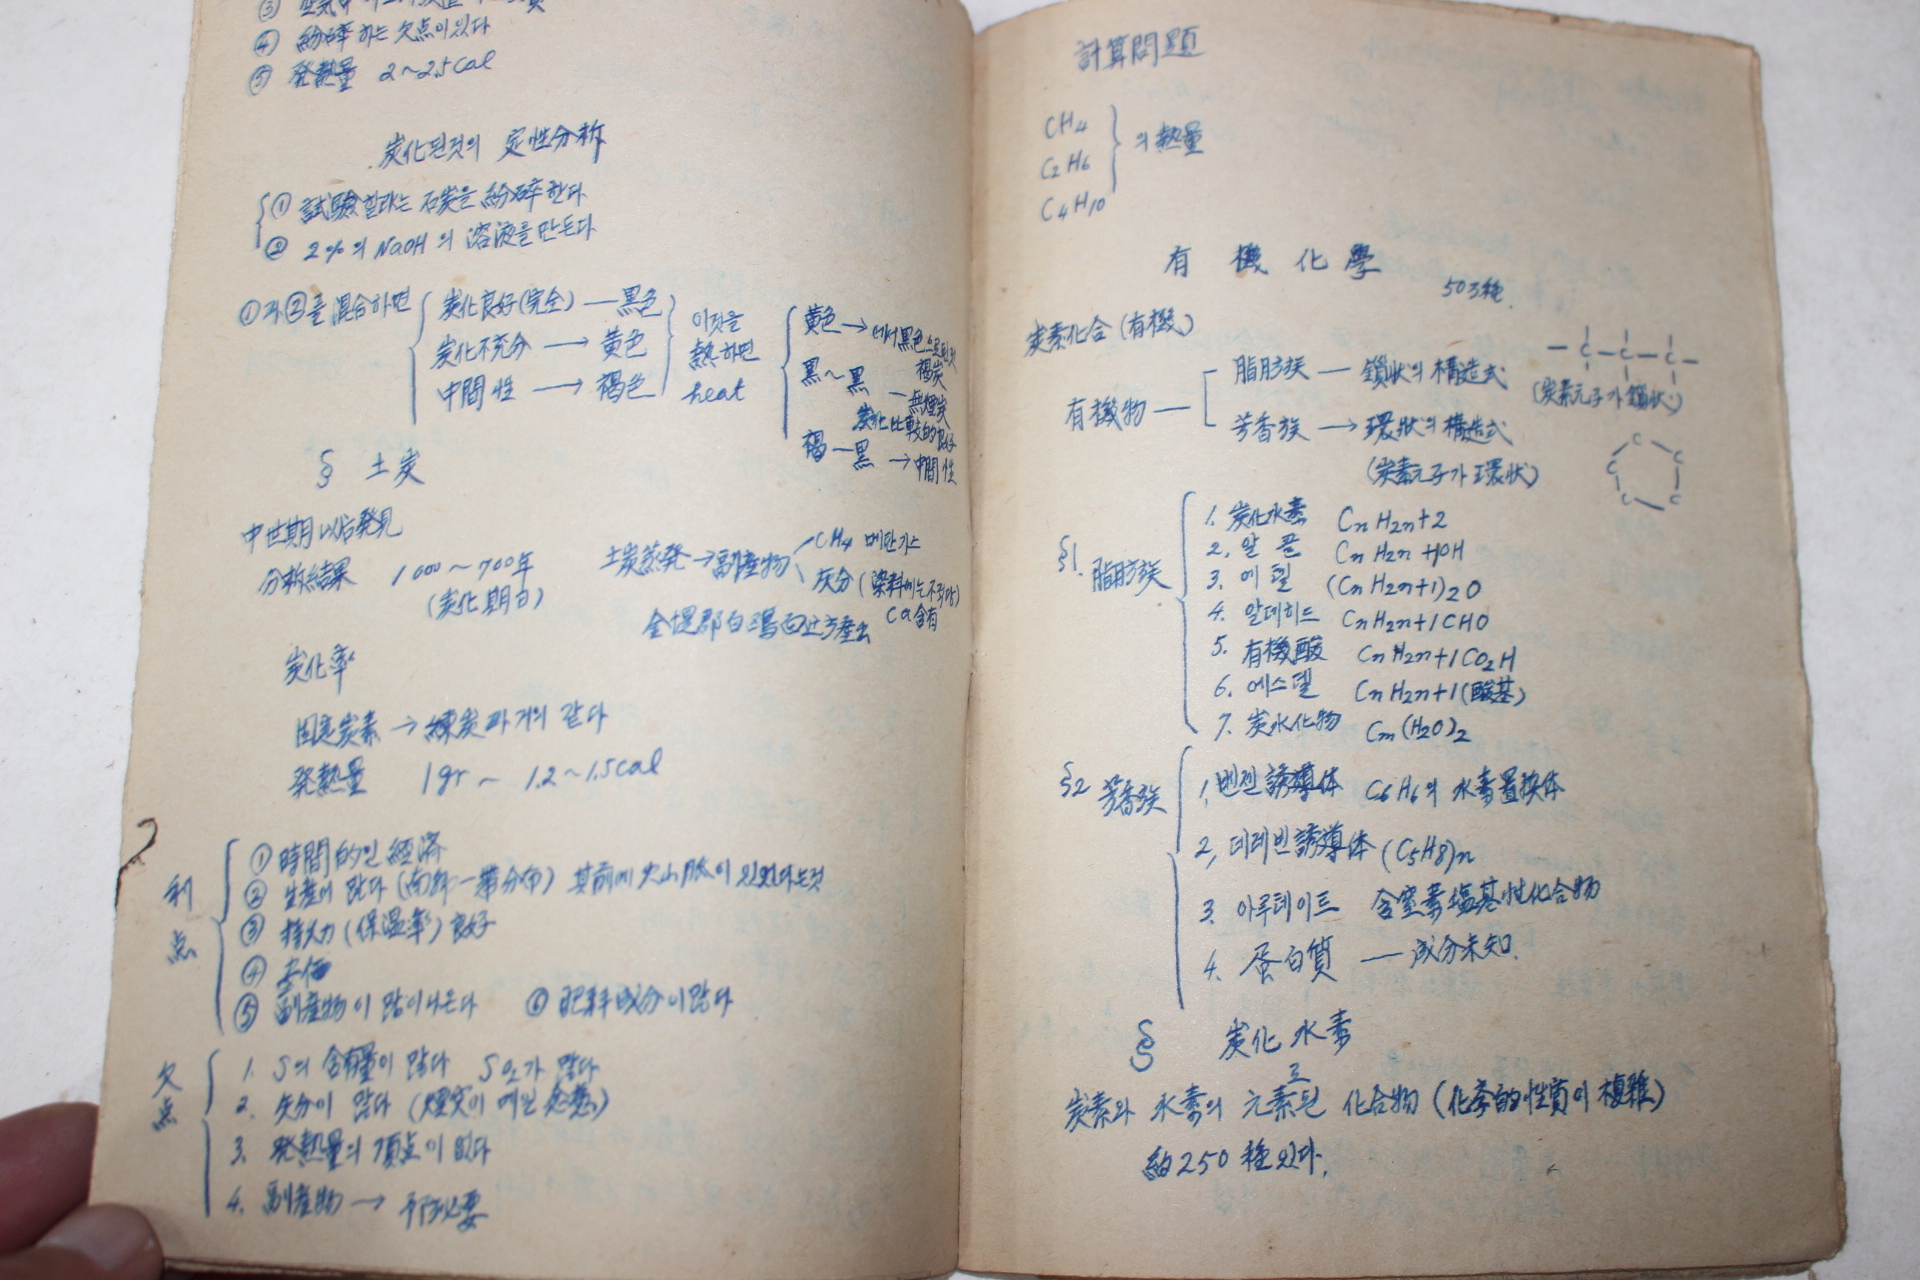 ④ 紛碎하는 欠点이 있다
⑤ 発熱量 2~2.5cal
炭化된것의 定性分析
① 試驗할라는 石炭을 紛碎한다
② 2%의 NaOH의 溶液를 만든다
①과②를 混合하면
炭化良好(完全) — 黒色
炭化不充分 → 黄色
中間性 → 褐色
이것을
熱하면
heat
黄色 → 에서 黒色으로된것
褐炭
黒~黒 — 無煙炭
炭化比較的良好
褐—黒 → 中間性
§ 土炭
中世期以后発見
分析結果 1000~700年
(炭化期日)
土炭蒸発→副産物
CH4 메탄가스
灰分
Ca 含有
炭化率
固定炭素 → 練炭과거의 같다
発熱量 1gr ~ 1.2~1.5cal
利点
① 時間的인 経済
② 生産이 많다
③ 持火力(保温率)良好
④
⑤ 副産物이 많이나온다 ⑥ 肥料成分이많다
欠点
1. S의 含有量이 많다 SO2가 많다
2. 灰分이 많다
3. 発熱量의 頂点이 없다
4. 副産物 →
計算問題
CH4
C2H6
C4H10
의 熱量
有機化學
503種.
炭素化合(有機)
有機物
脂肪族 — 鎖状의 構造式
(炭素元子가 鎖状)
芳香族 → 環状의 構造式
(炭素元子가 環状)
C C C
C C C C C
§1. 脂肪族
1. 炭化水素 CnH2n+2
2. 알콜 CnH2n+1OH
3. 에텔 (CnH2n+1)2O
4. 알데히드 CnH2n+1CHO
5. 有機酸 CnH2n+1CO2H
6. 에스텔 CnH2n+1(酸基)
7. 炭水化物 Cm(H2O)2
§2 芳香族
1. 벤젠誘導体 C6H6의 水素置換体
2, 데레빈誘導体 (C5H8)n
3. 아루데이트 含窒素塩基性化合物
4. 蛋白質 — 成分未知.
§ 炭化水素
炭素와 水素의 元素로된 化合物(化学的性質이 複雜)
約250種있다.